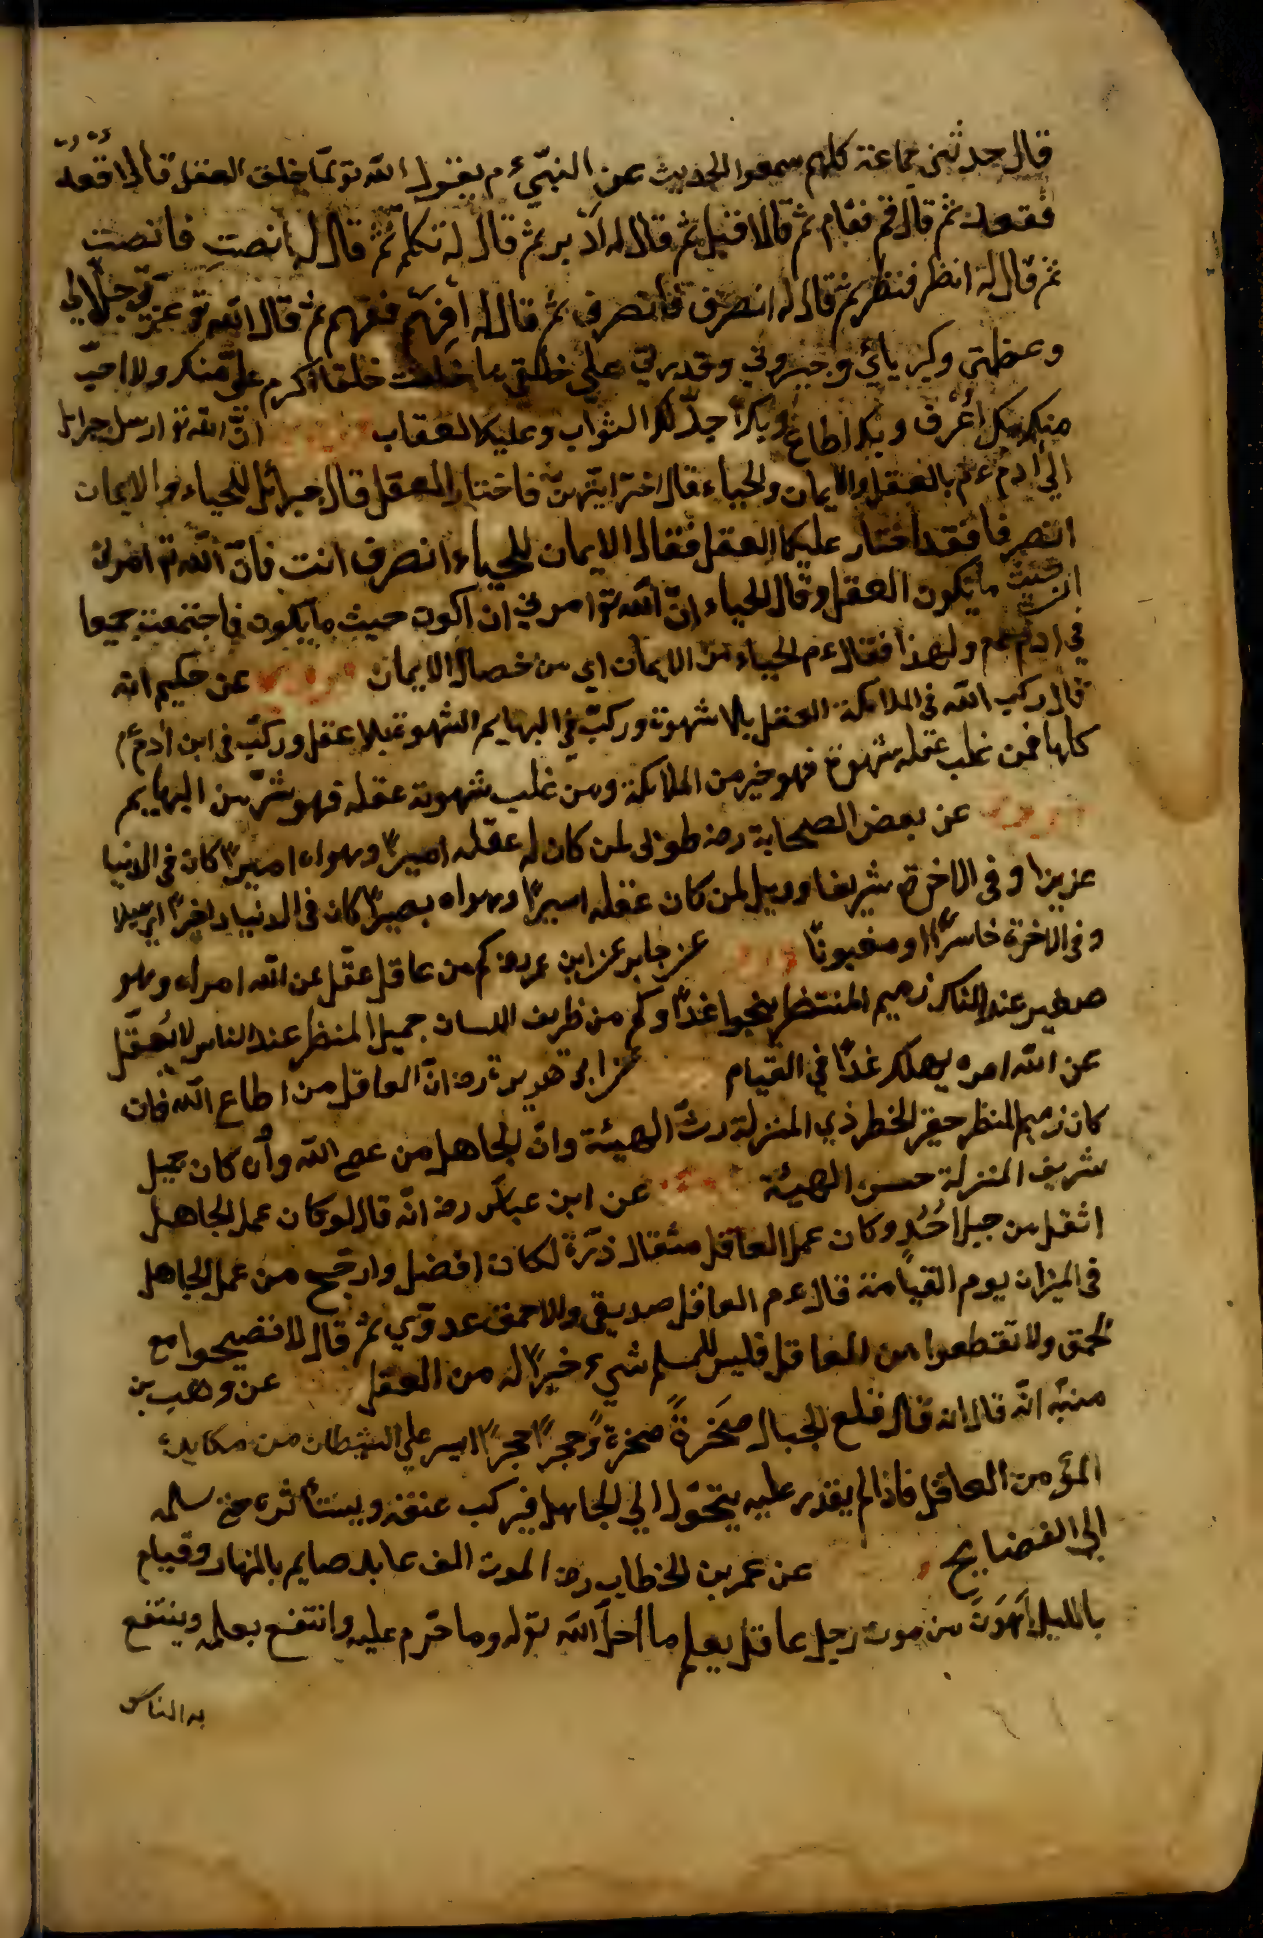 قال حدثنى جماعة كلهم سمعوا الحديث عن النبىّ ءم يقول الله تو لمّا خلق العقل قال له اقعد
فقعد ثم قال قم فقام ثم قال اقبل ثم قال له ادبر ثم قال له تكلم ثم قال له انصت فانصت
ثم قال له انظر فنظر ثم قال له انصرف فانصرف ثم قال له أفهم ففهم ثم قال الله تو عزتي وجلالي
وعظمتي وكبريائي وجبروتي وقدرتي علي خلقي ما خلقت خلقا اكرم عليّ منك ولا احبّ
منك بك اعرف وبك اطاع وبك آخذ لك الثواب وعليك العقاب ان الله تو ارسل جبرائل
الي آدم ءم بالعقل والايمان والحياء قال اختر ايّتهنّ فاختار العقل قال جبرائل للحياء والايمان
انصرفا فقد اختار عليكما العقل فقال الايمان للحياء انصرف انت فانّ الله تو امرني
ان حيث ما يكون العقل وقال الحياء انّ الله تو امرني ان اكون حيث ما يكون فاجتمعت جميعا
في ادم ءم ولهذا فقال ءم الحياء من الايمان اي من خصال الايمان عن حكيم انه
قال ركب الله في الملائكة العقل بلا شهوة وركبّ في البهايم الشهوة بلا عقل وركبّ في ابن ادم ءم
كلها فمن غلب عقله شهوة فهو خير من الملائكة ومن غلب شهوته عقله فهو شرّ من البهايم
عن بعض الصحابة رضه طوبى لمن كان له عقله اميرًا وهواه اسيرًا كان في الدنيا
عزيزا وفي الاخرة شريفا وويل لمن كان عقله اسيرًا وهواه بصيرًا كان في الدنيا
وفي الاخرة خاسرًا ومغبونًا عن جابر عن ابن عمر رضه كم من عاقل عقل عن الله امره وهو
صغير عند الناس ذميم المنتظر ينجوا غدًا وكم من ظريف اللسان جميل المنظر عند الناس لا يُعقّل
عن الله امره يهلك غدًا في القيام عن ابى هريرة رضه انّ العاقل من اطاع الله فان
كان ذميم المنظر حقير الخطر ذي المنزلة رثّ الهيئة وانّ الجاهل من عصى الله وان كان جميل
شريف المنزلة حسن الهيئة عن ابن عباس رضه انّه قال لو كان عمل الجاهل
اثقل من جبل اُحُدٍ وكان عمل العاقل مثقال ذرّة لكان افضل وارجّح من عمل الجاهل
في الميزان يوم القيامة قال ءم العاقل صديقي والاحمق عدوّي ثم قال لا تفضيحوا مع
الحمق ولا تقطعوا من العاقل فليس للمسلم شيء خيرًا له من العقل عن وهب بن
منبّه انّه قال انه قال قلع الجبال صَخرةً صخرة وحجرًا حجرًا ايسر علي الشيطان من مكايدة
المؤمن العاقل فاذا لم يقدر عليه يتحوّل الي الجاهل فيركب عنقه ويستأثره حتى يسلمه
إلي الفضايح عن عمر بن الخطاب رضه الموت الف عابد صايم بالنهار وقيام
بالليل اهون من موت رجل عاقل يعلم ما احل الله تو له وما حرّم عليه وانتفع بعلمه وينتفع
به الناس